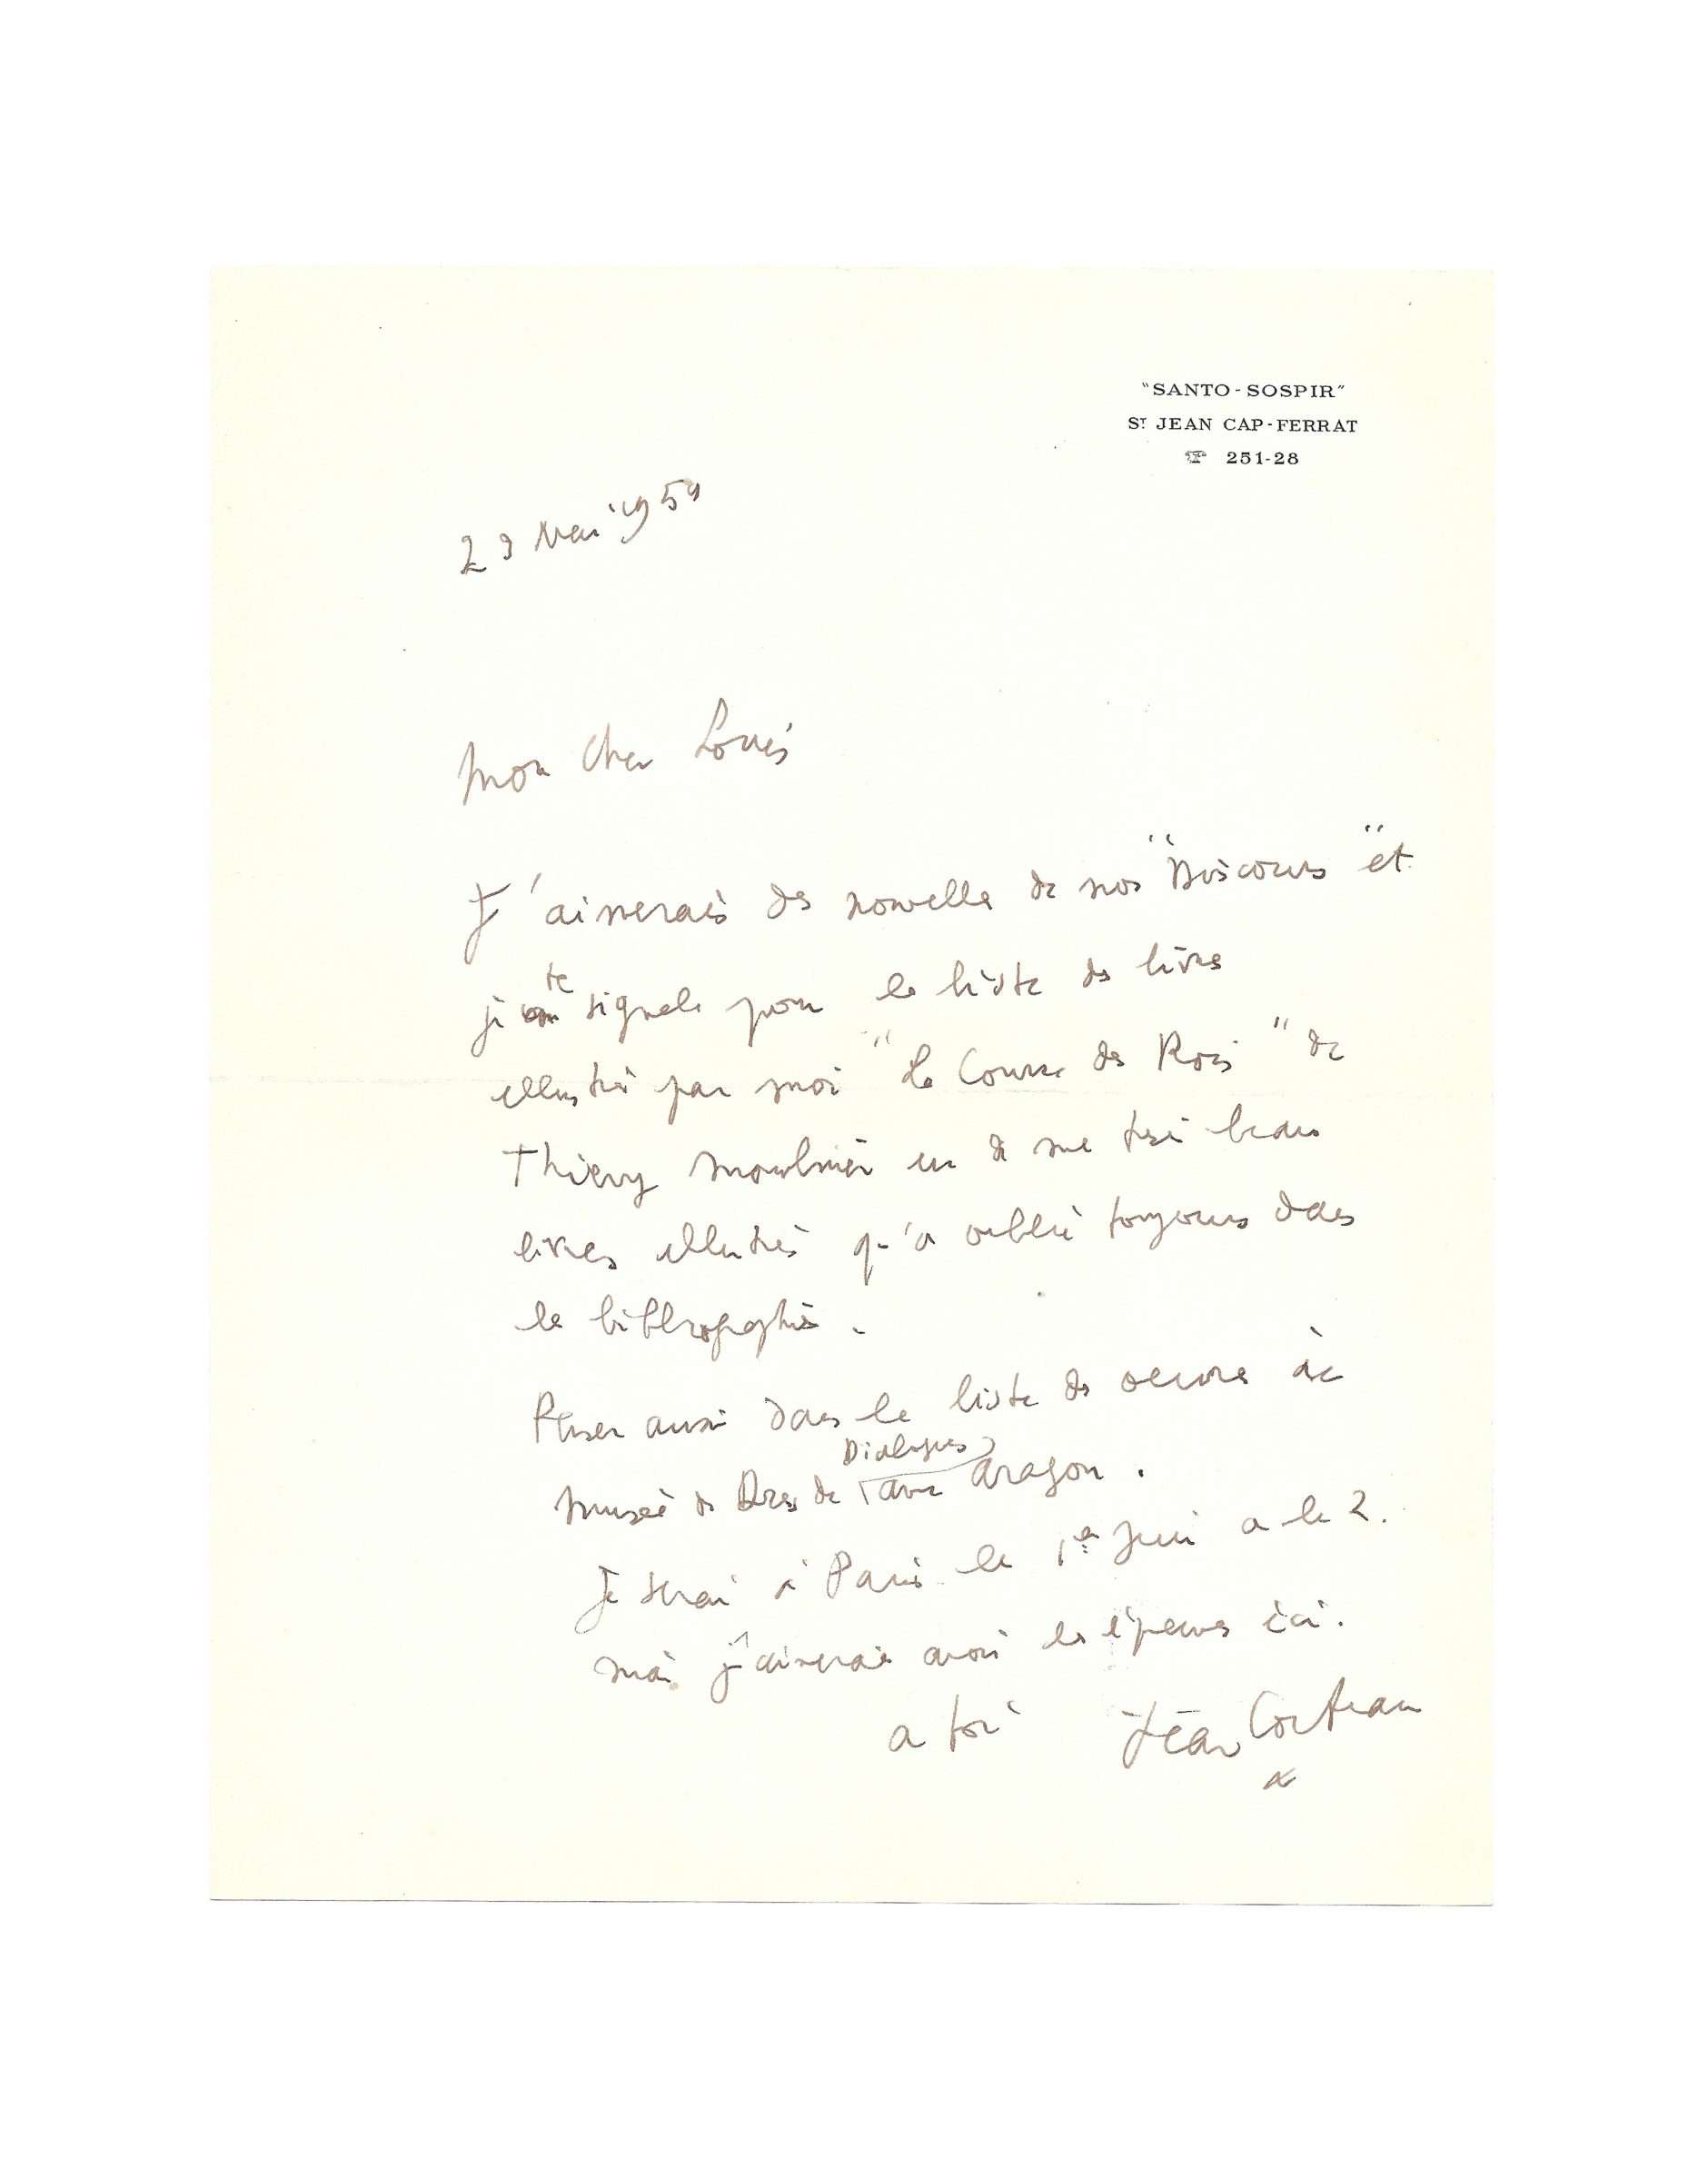 "SANTO-SOSPIR"
ST JEAN CAP-FERRAT
251-28
23 Mai 1959
Mon cher Louis
J'aimerais des nouvelles de nos "Discours" et
je te signale pour la liste des livres
illustrés par moi "La Course des Rois" de
Thierry Maulnier un de mes très beaux
livres illustrés qu'on oublie toujours dans
les bibliographies.
Penser aussi dans la liste des œuvres au
musée de Dresde Dialogues avec Aragon.
Je serai à Paris le 1er Juin ou le 2.
mais j'aimerais avoir les épreuves ici.
a toi Jean Cocteau